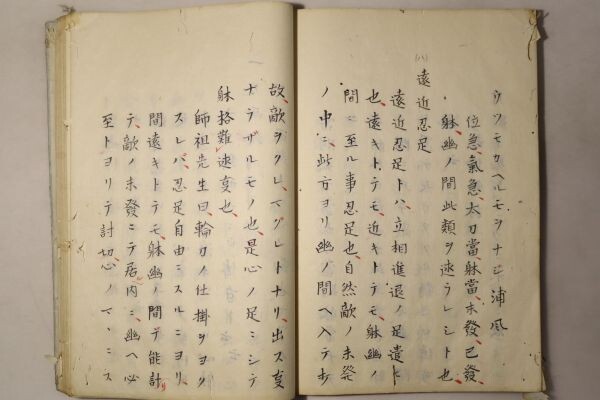 ウツモカヘルモヲナシ浦風
位急氣急太刀當躰當未發已發
躰幽ノ間此類ヲ速ラレシト也
(八)
遠近忍足
遠近忍足トハ立相進退ノ足遣ヒ
也遠キトテモ近キトテモ躰幽ノ
間ニ至ル事忍足也自然敵ノ未發
ノ中ニ此方ヨリ幽ノ間ヘ入テ打
故敵ヲクレマグレトナリ出ス㕝
ナラザルモノ也是心ノ足ニシテ
躰挌難速㕝也
師祖先生曰輪刀ノ仕掛ヲヨク
スレバ忍足自由ニスルニヨリ
間遠キトテモ躰幽ノ間ヲ能計リ
テ敵ノ未發ニテ居内ニ幽ヘ必
至トヨリテ討切心ノマヽニス